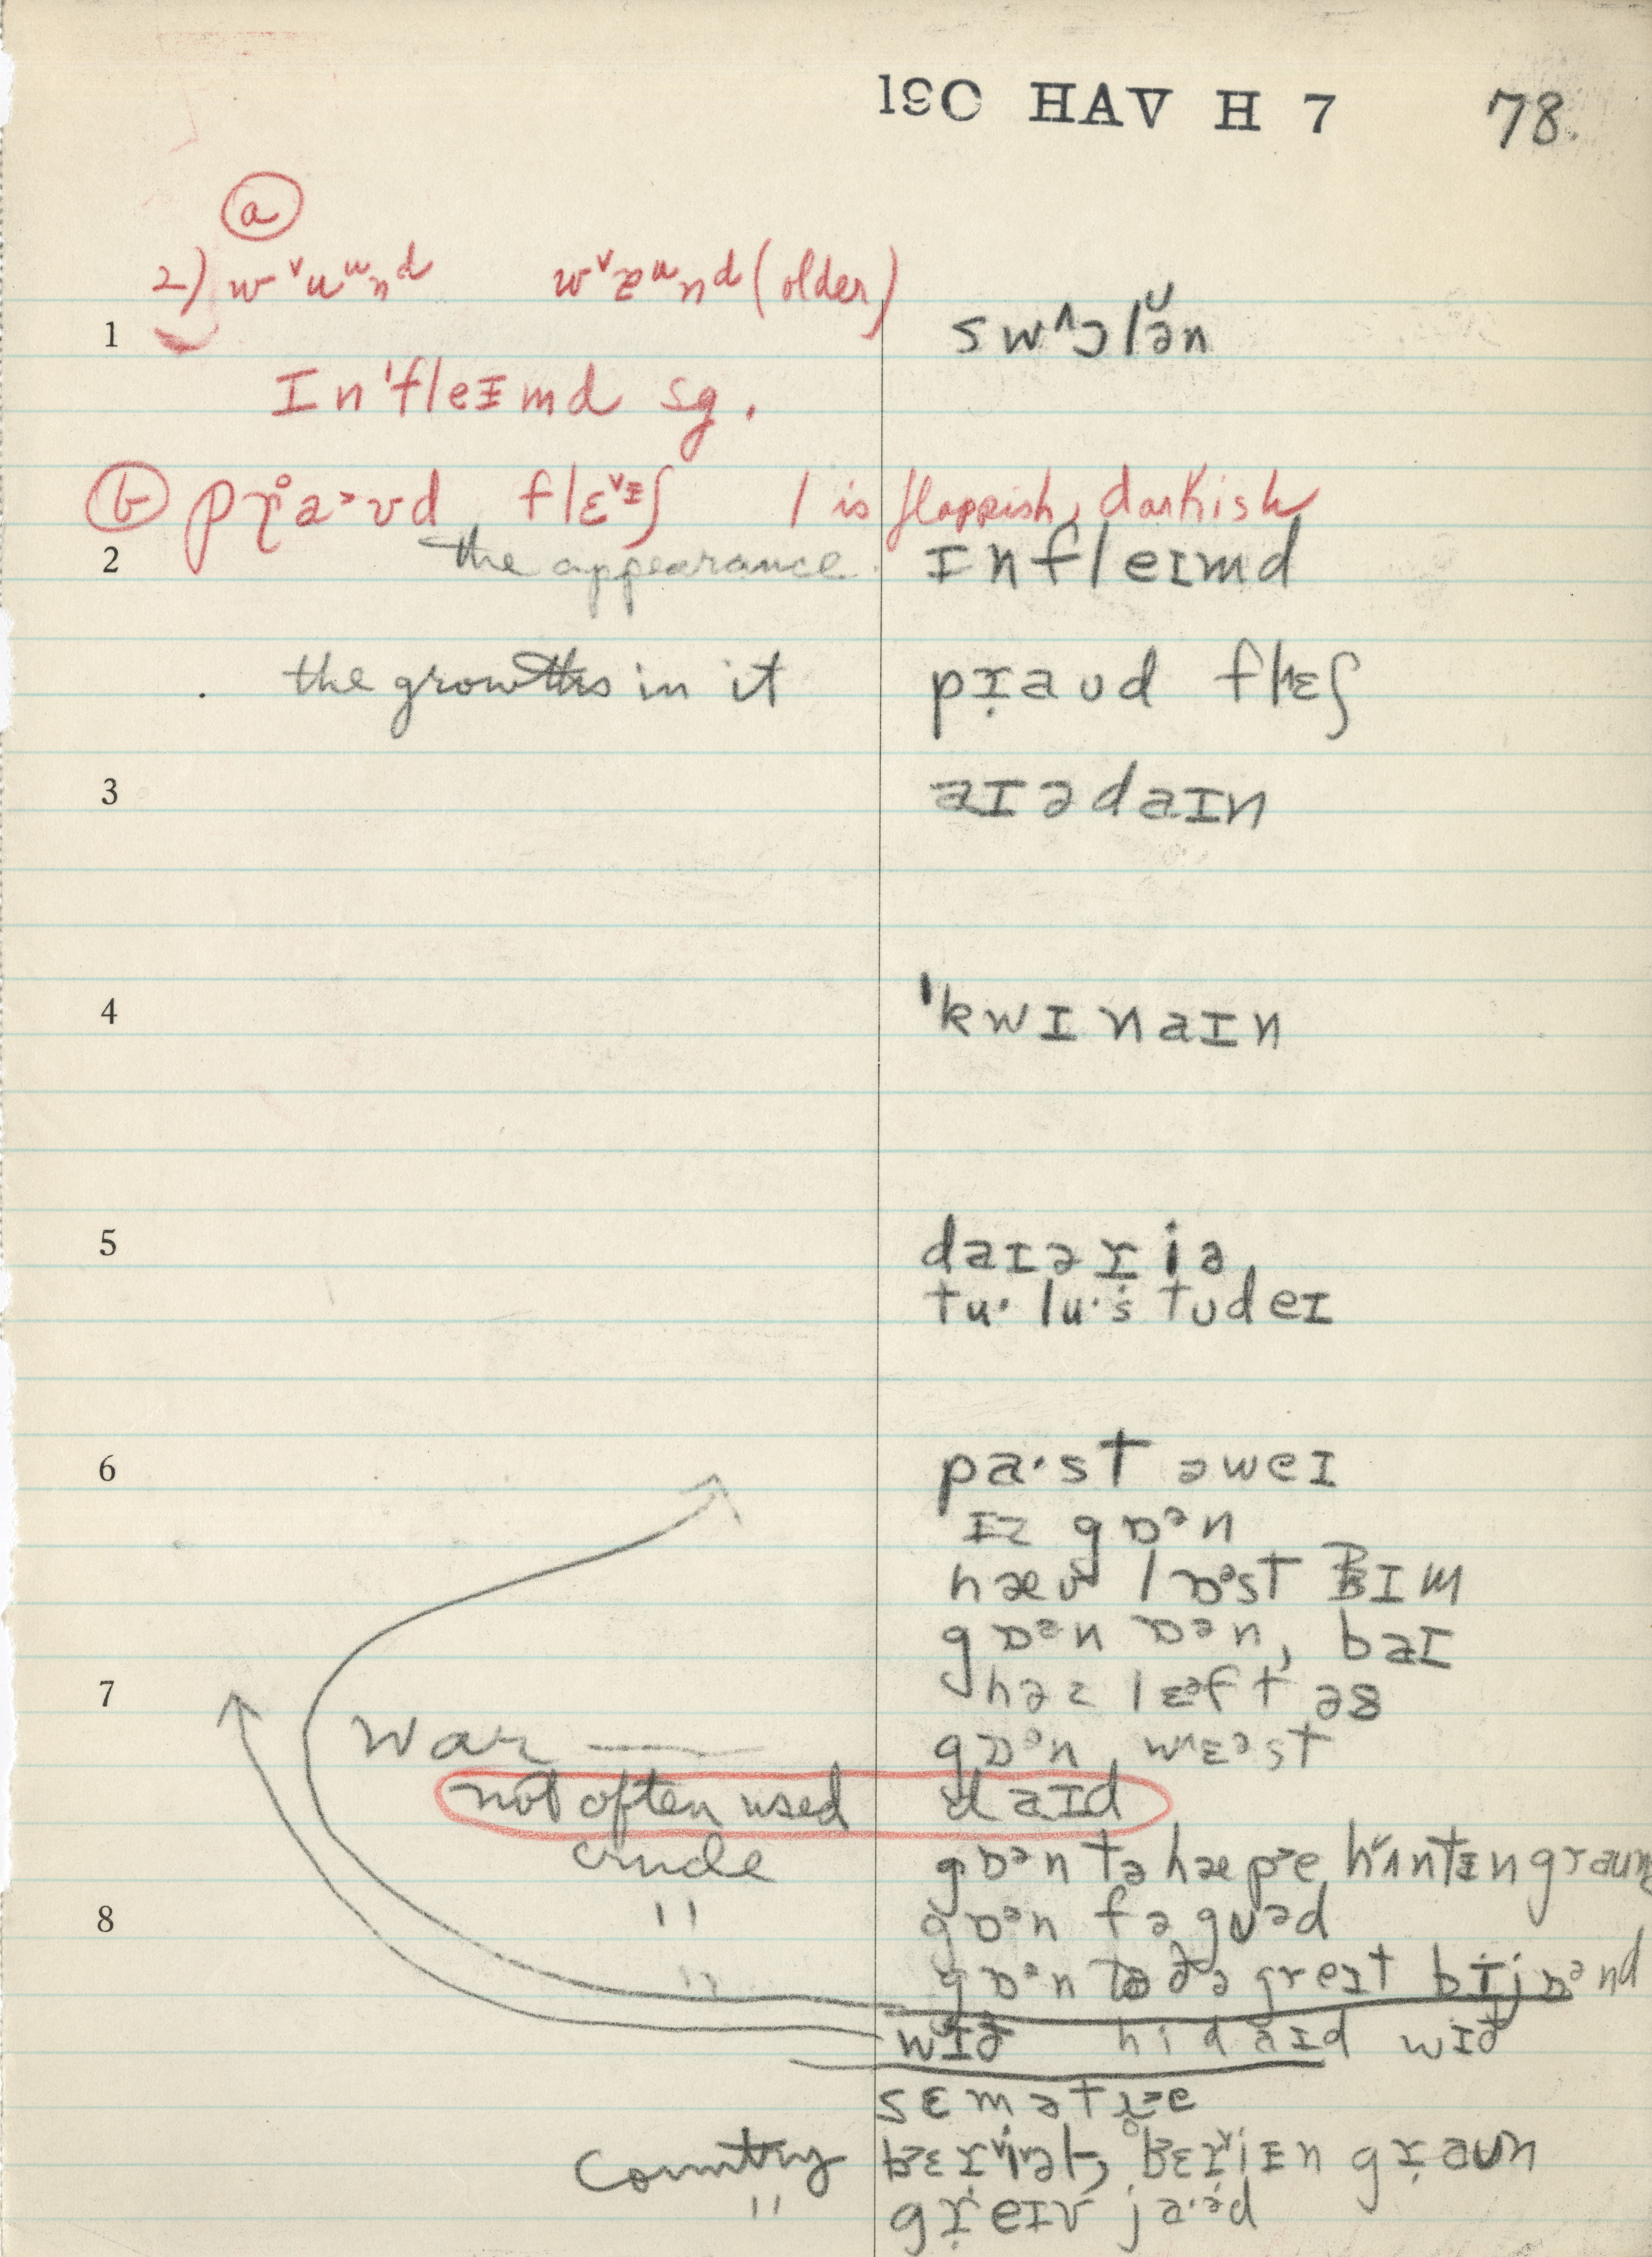 190 HAV H 7 78.
a
2) wᵛuʷnd wᵛəᵘnd (older)
1 swʌɔlə̆n
In'fleɪmd sg.
b prḁ>ʊd flɛᵛᶦʃ l is flappish, darkish
2 the appearance. ɪnfleɪmd
the growths in it pɹ̣aʊd flɛʃ
3 aɪədaɪn
4 'kwɪnaɪn
5 daɪəɹiə
tu· lu·s tudeɪ
6 pa·st əweɪ
ɪz gɒᵊn
hæv lɒᵊst hɪm
gɒᵊn ɒᵊn, baɪ
7 həz lɛᵊft əs
War — gɒᵊn wɛᵊst
not often used daɪd
crude gɒᵊn tə hæpe hʌntɪngraun
8 " gɒᵊn fə guᵊd
" gɒᵊn tə ðə greɪt bɪjɒᵊnd
wɪð hi daɪd wɪð
sɛmətɹe
Country bɛɹiəl, bɛɹiɪn gɹaun
" gɹeɪv ja·əd